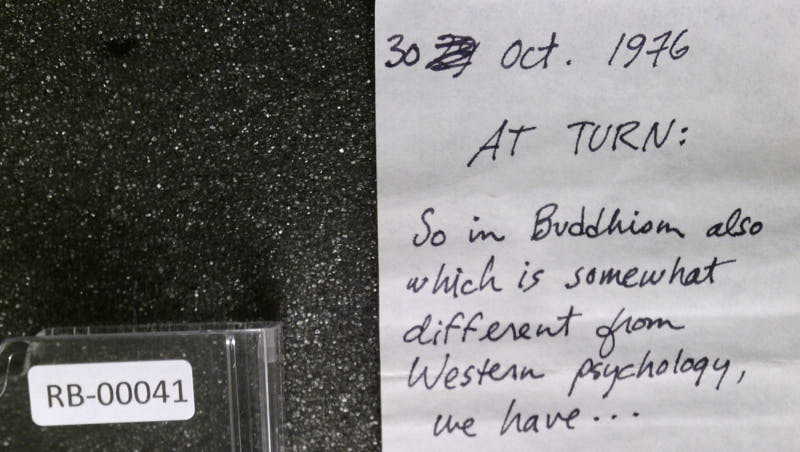 30 Oct. 1976
AT TURN:
So in Buddhism also
which is somewhat
different from
Western psychology,
we have...
RB-00041